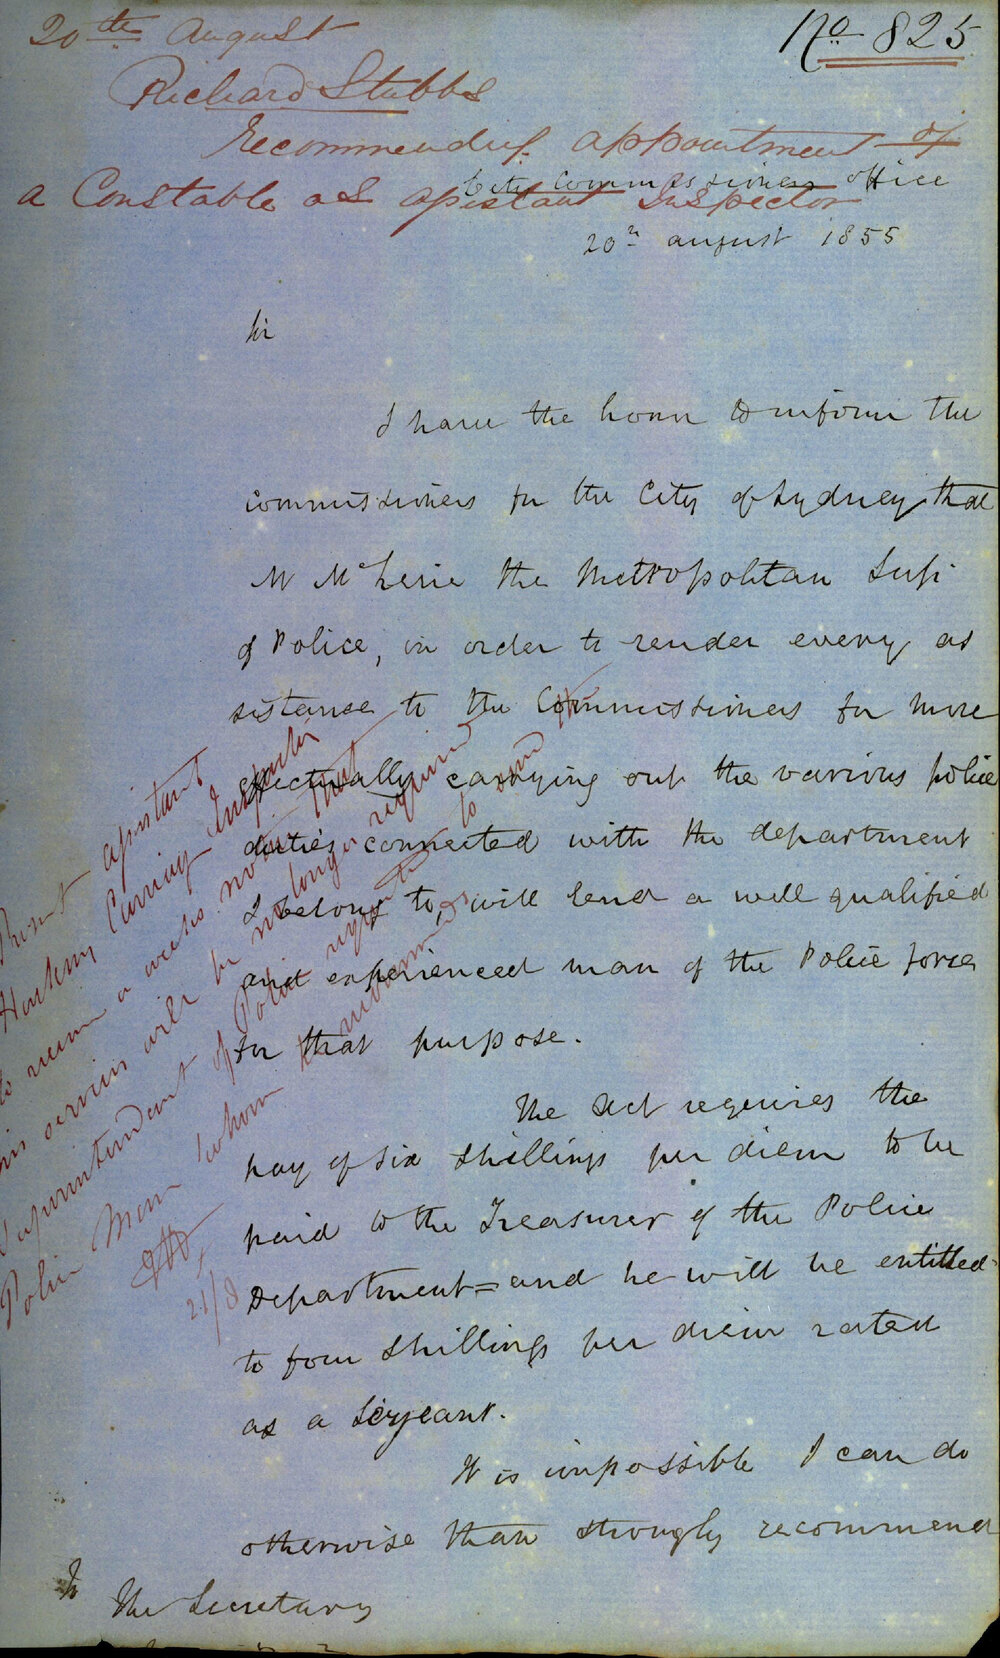 20th August
No 825
Richard Stubbs
Recommending appointment of
a Constable as assistant Inspector
City Commissioners office
20th august 1855
Sir
I have the honor to inform the
commissioners for the City of Sydney that
Mr McLerie the Metropolitan Supt
of Police, in order to render every as
sistance to the Commissioners for more
effectually carrying out the various police
duties connected with the department
I belong to, will lend a well qualified
and experienced man of the Police force
for that purpose.
The Act requires the
pay of six shillings per diem to be
paid to the Treasurer of the Police
Department = and he will be entitled
to four shillings per diem rated
as a Serjeant.
It is impossible I can do
otherwise than strongly recommend
To
The Secretary
assistant
Inspector
to a weeks notice that
his services will be no longer required
Superintendent of Police to send the
Police Man whom
21/8